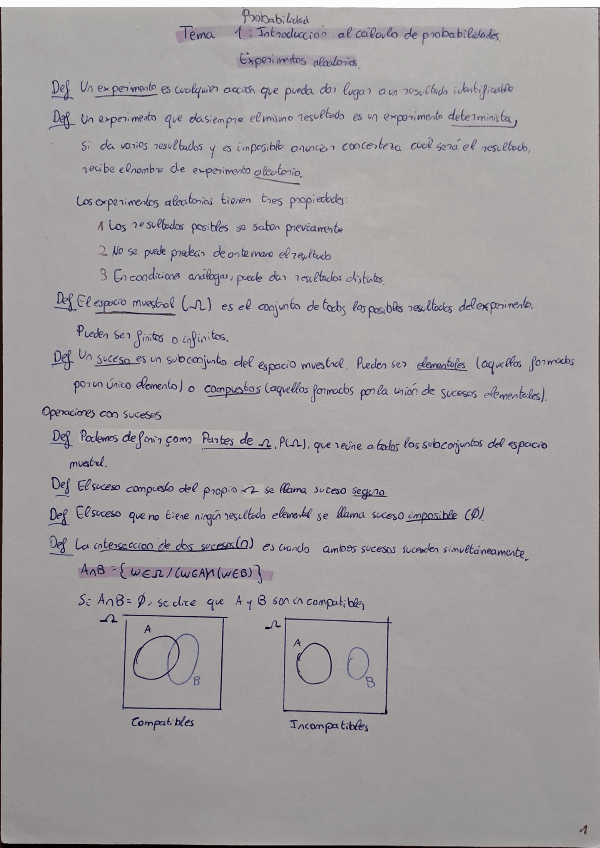 Probabilidad
Tema 1: Introducción al cálculo de probabilidades.
Experimentos aleatorios.
Def Un experimento es cualquier acción que pueda dar lugar a un resultado identificable
Def Un experimento que da siempre el mismo resultado es un experimento determinista,
si da varios resultados y es imposible anunciar con certeza cuál será el resultado,
recibe el nombre de experimento aleatorio.
Los experimentos aleatorios tienen tres propiedades:
1 Los resultados posibles se saben previamente
2 No se puede predecir de antemano el resultado
3 En condiciones análogas, puede dar resultados distintos.
Def El espacio muestral (Ω) es el conjunto de todos los posibles resultados del experimento.
Pueden ser finitos o infinitos.
Def Un suceso es un subconjunto del espacio muestral. Pueden ser elementales (aquellos formados
por un único elemento) o compuestos (aquellos formados por la unión de sucesos elementales).
Operaciones con sucesos
Def Podemos definir como Partes de Ω, P(Ω), que reúne a todos los subconjuntos del espacio
muestral.
Def El suceso compuesto del propio Ω se llama suceso seguro
Def El suceso que no tiene ningún resultado elemental se llama suceso imposible (∅).
Def La intersección de dos sucesos (∩) es cuando ambos sucesos suceden simultáneamente.
A∩B = { w∈Ω / (w∈A) ∧ (w∈B) }
Si A∩B = ∅, se dice que A y B son incompatibles
Ω A B
Ω A B
Compatibles
Incompatibles
1